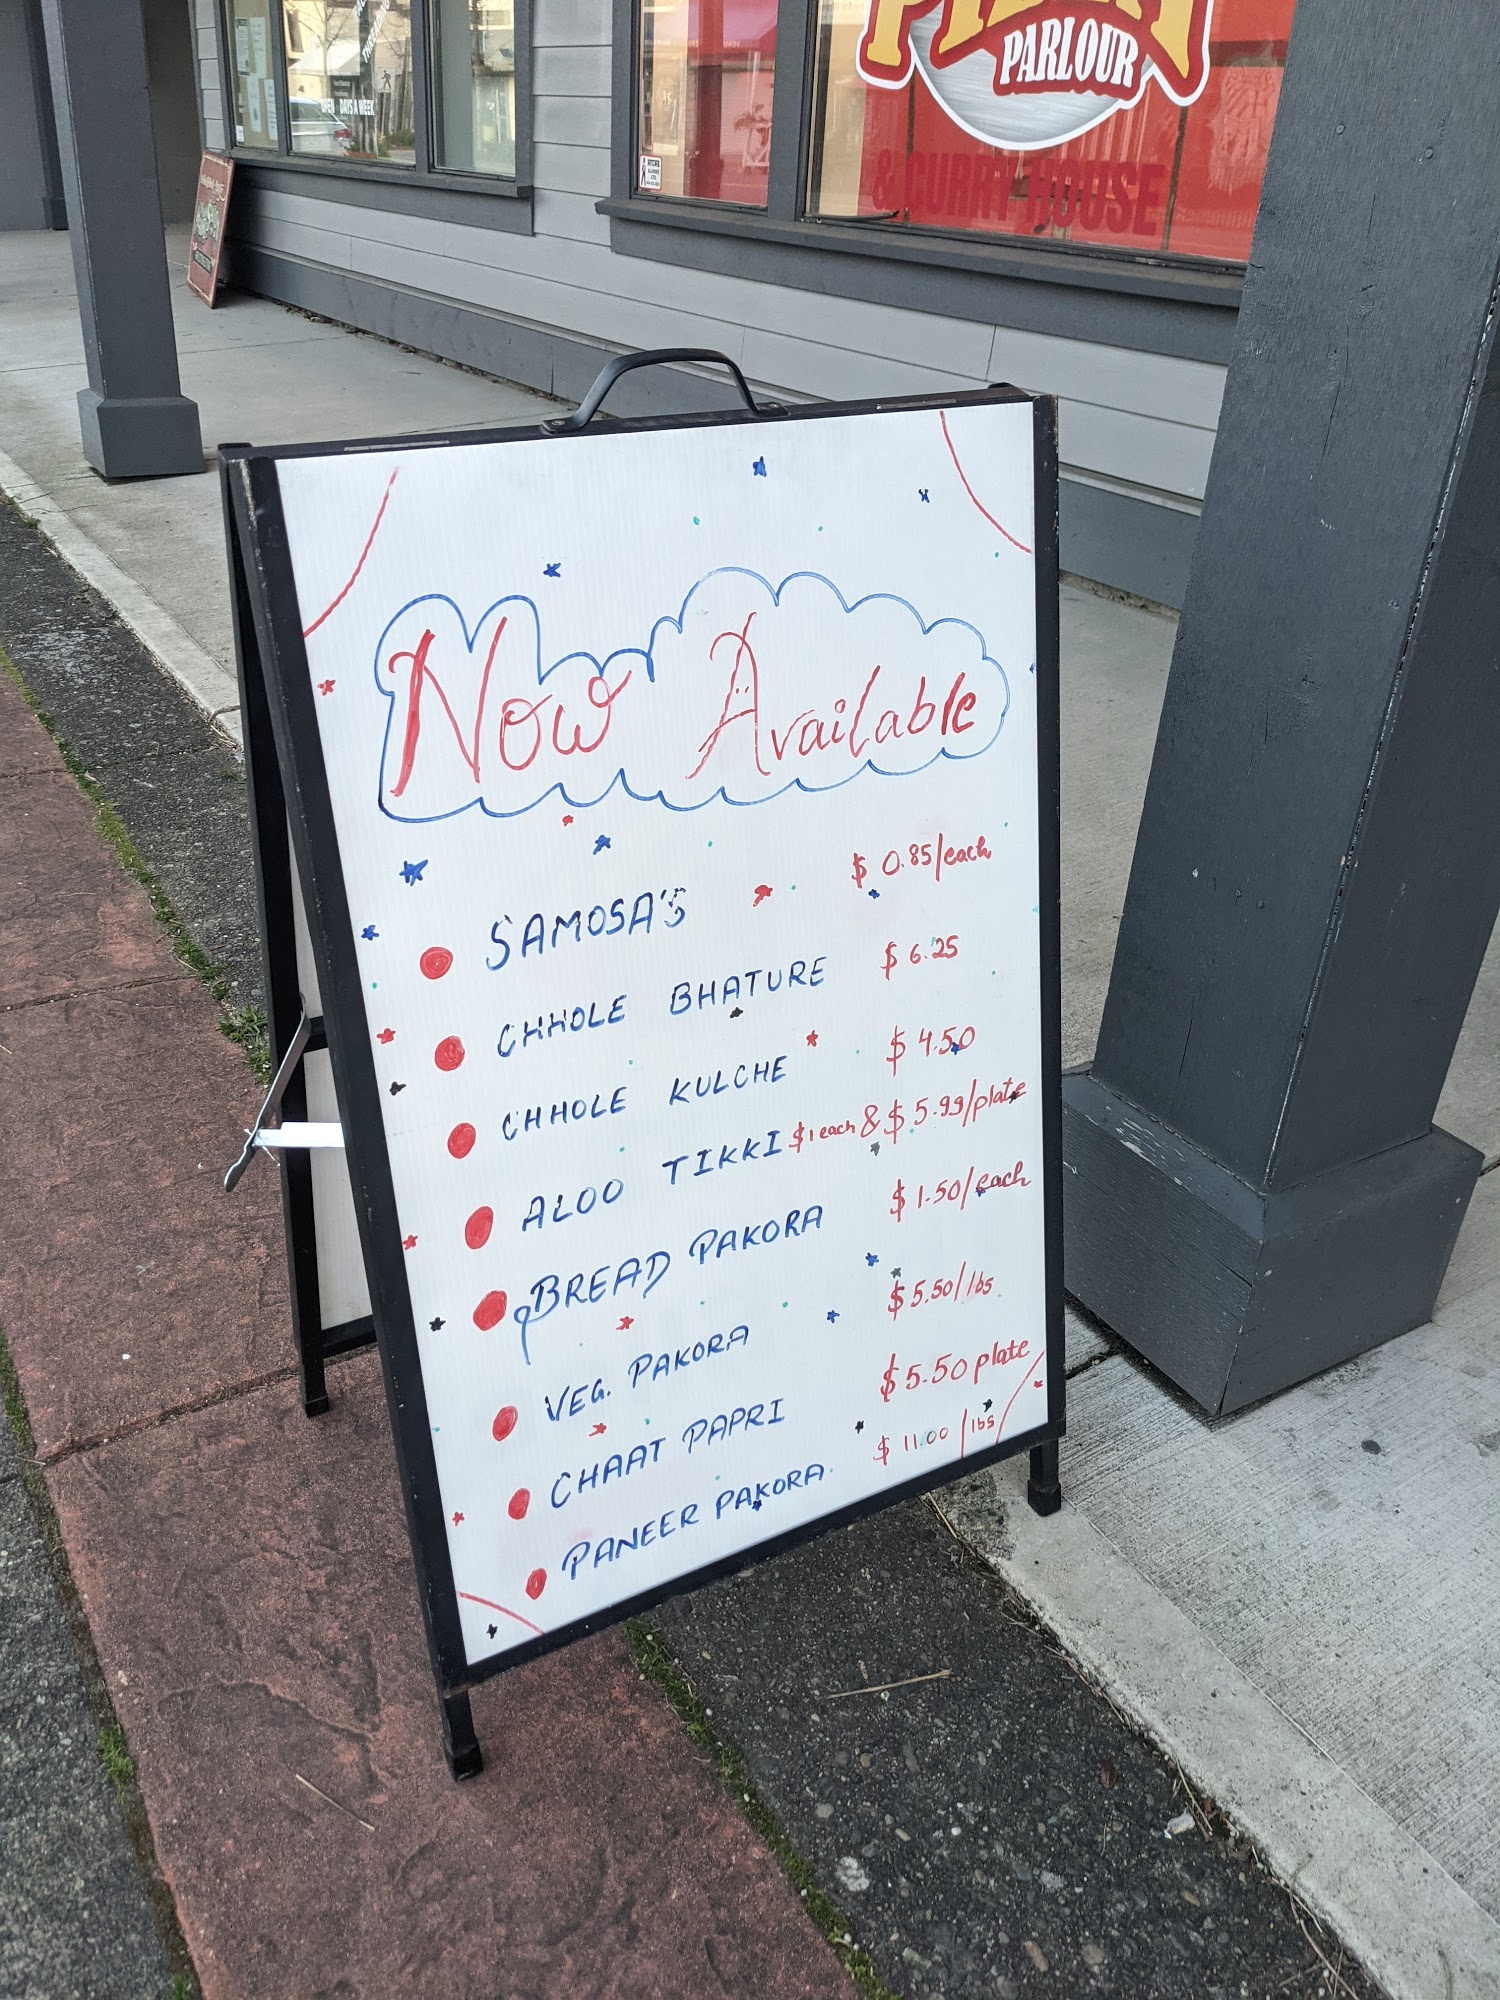 PARLOUR
& CURRY HOUSE
OPEN DAYS A WEEK
Now Available
SAMOSA'S $ 0.85/each
CHHOLE BHATURE $ 6.25
CHHOLE KULCHE $ 4.50
ALOO TIKKI $1 each & $ 5.99/plate
BREAD PAKORA $ 1.50/each
VEG. PAKORA $ 5.50/lbs.
CHAAT PAPRI $ 5.50 plate
PANEER PAKORA. $ 11.00/lbs